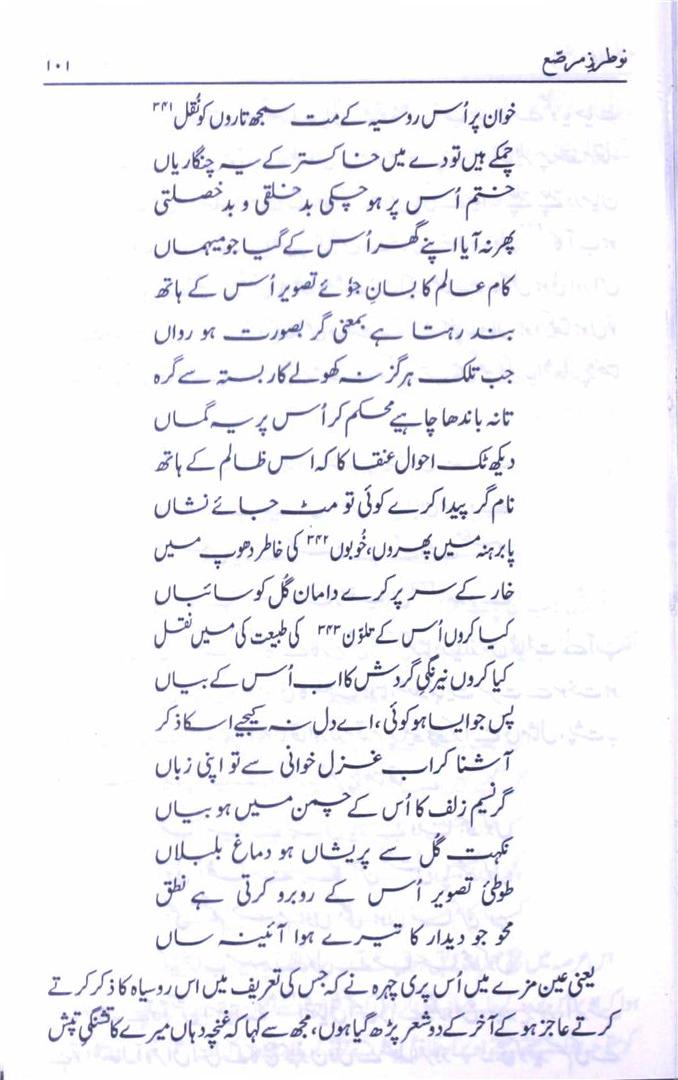 نو طرزِ مرصّع ۱۰۱
خوان پر اُس روسیہ کے مت سمجھ تاروں کو نُقل ۳۴۱
چمکے ہیں تودے میں خاکستر کے یہ چنگاریاں
ختم اُس پر ہوچکی بدخلقی و بدخصلتی
پھر نہ آیا اپنے گھر اُس کے گیا جو میہماں
کام عالم کا بسانِ جوٗئے تصویر اُس کے ہاتھ
بند رہتا ہے بمعنی گر بصورت ہو رواں
جب تلک ہرگز نہ کھولے کاربستہ سے گرہ
تا نہ باندھا چاہیے محکم کر اُس پر یہ گماں
دیکھ ٹک احوال عنقا کا کہ اس ظالم کے ہاتھ
نام گر پیدا کرے کوئی تو مٹ جائے نشاں
پابرہنہ میں پھروں، خُوبوں ۳۴۲ کی خاطر دھوپ میں
خار کے سر پر کرے دامان گُل کو سائباں
کیا کروں اُس کے تلوّن ۳۴۳ کی طبیعت کی میں نقل
کیا کروں نیرنگی گردش کا اب اُس کے بیاں
پس جو ایسا ہو کوئی، اے دل نہ کیجیے اسکا ذکر
آشنا کر اب غزل خوانی سے تو اپنی زباں
گر نسیم زلف کا اُس کے چمن میں ہو بیاں
نکہت گُل سے پریشاں ہو دماغ بلبلاں
طوطیٔ تصویر اُس کے روبرو کرتی ہے نطق
محو جو دیدار کا تیرے ہوا آئینہ ساں
یعنی عین مزے میں اُس پری چہرہ نے کہ جس کی تعریف میں اس روسیاہ کا ذکر کرتے
کرتے عاجز ہو کے آخر کے دو شعر پڑھ گیا ہوں، مجھ سے کہا کہ غنچہ دہاں میرے کا تشنگیِ تپش